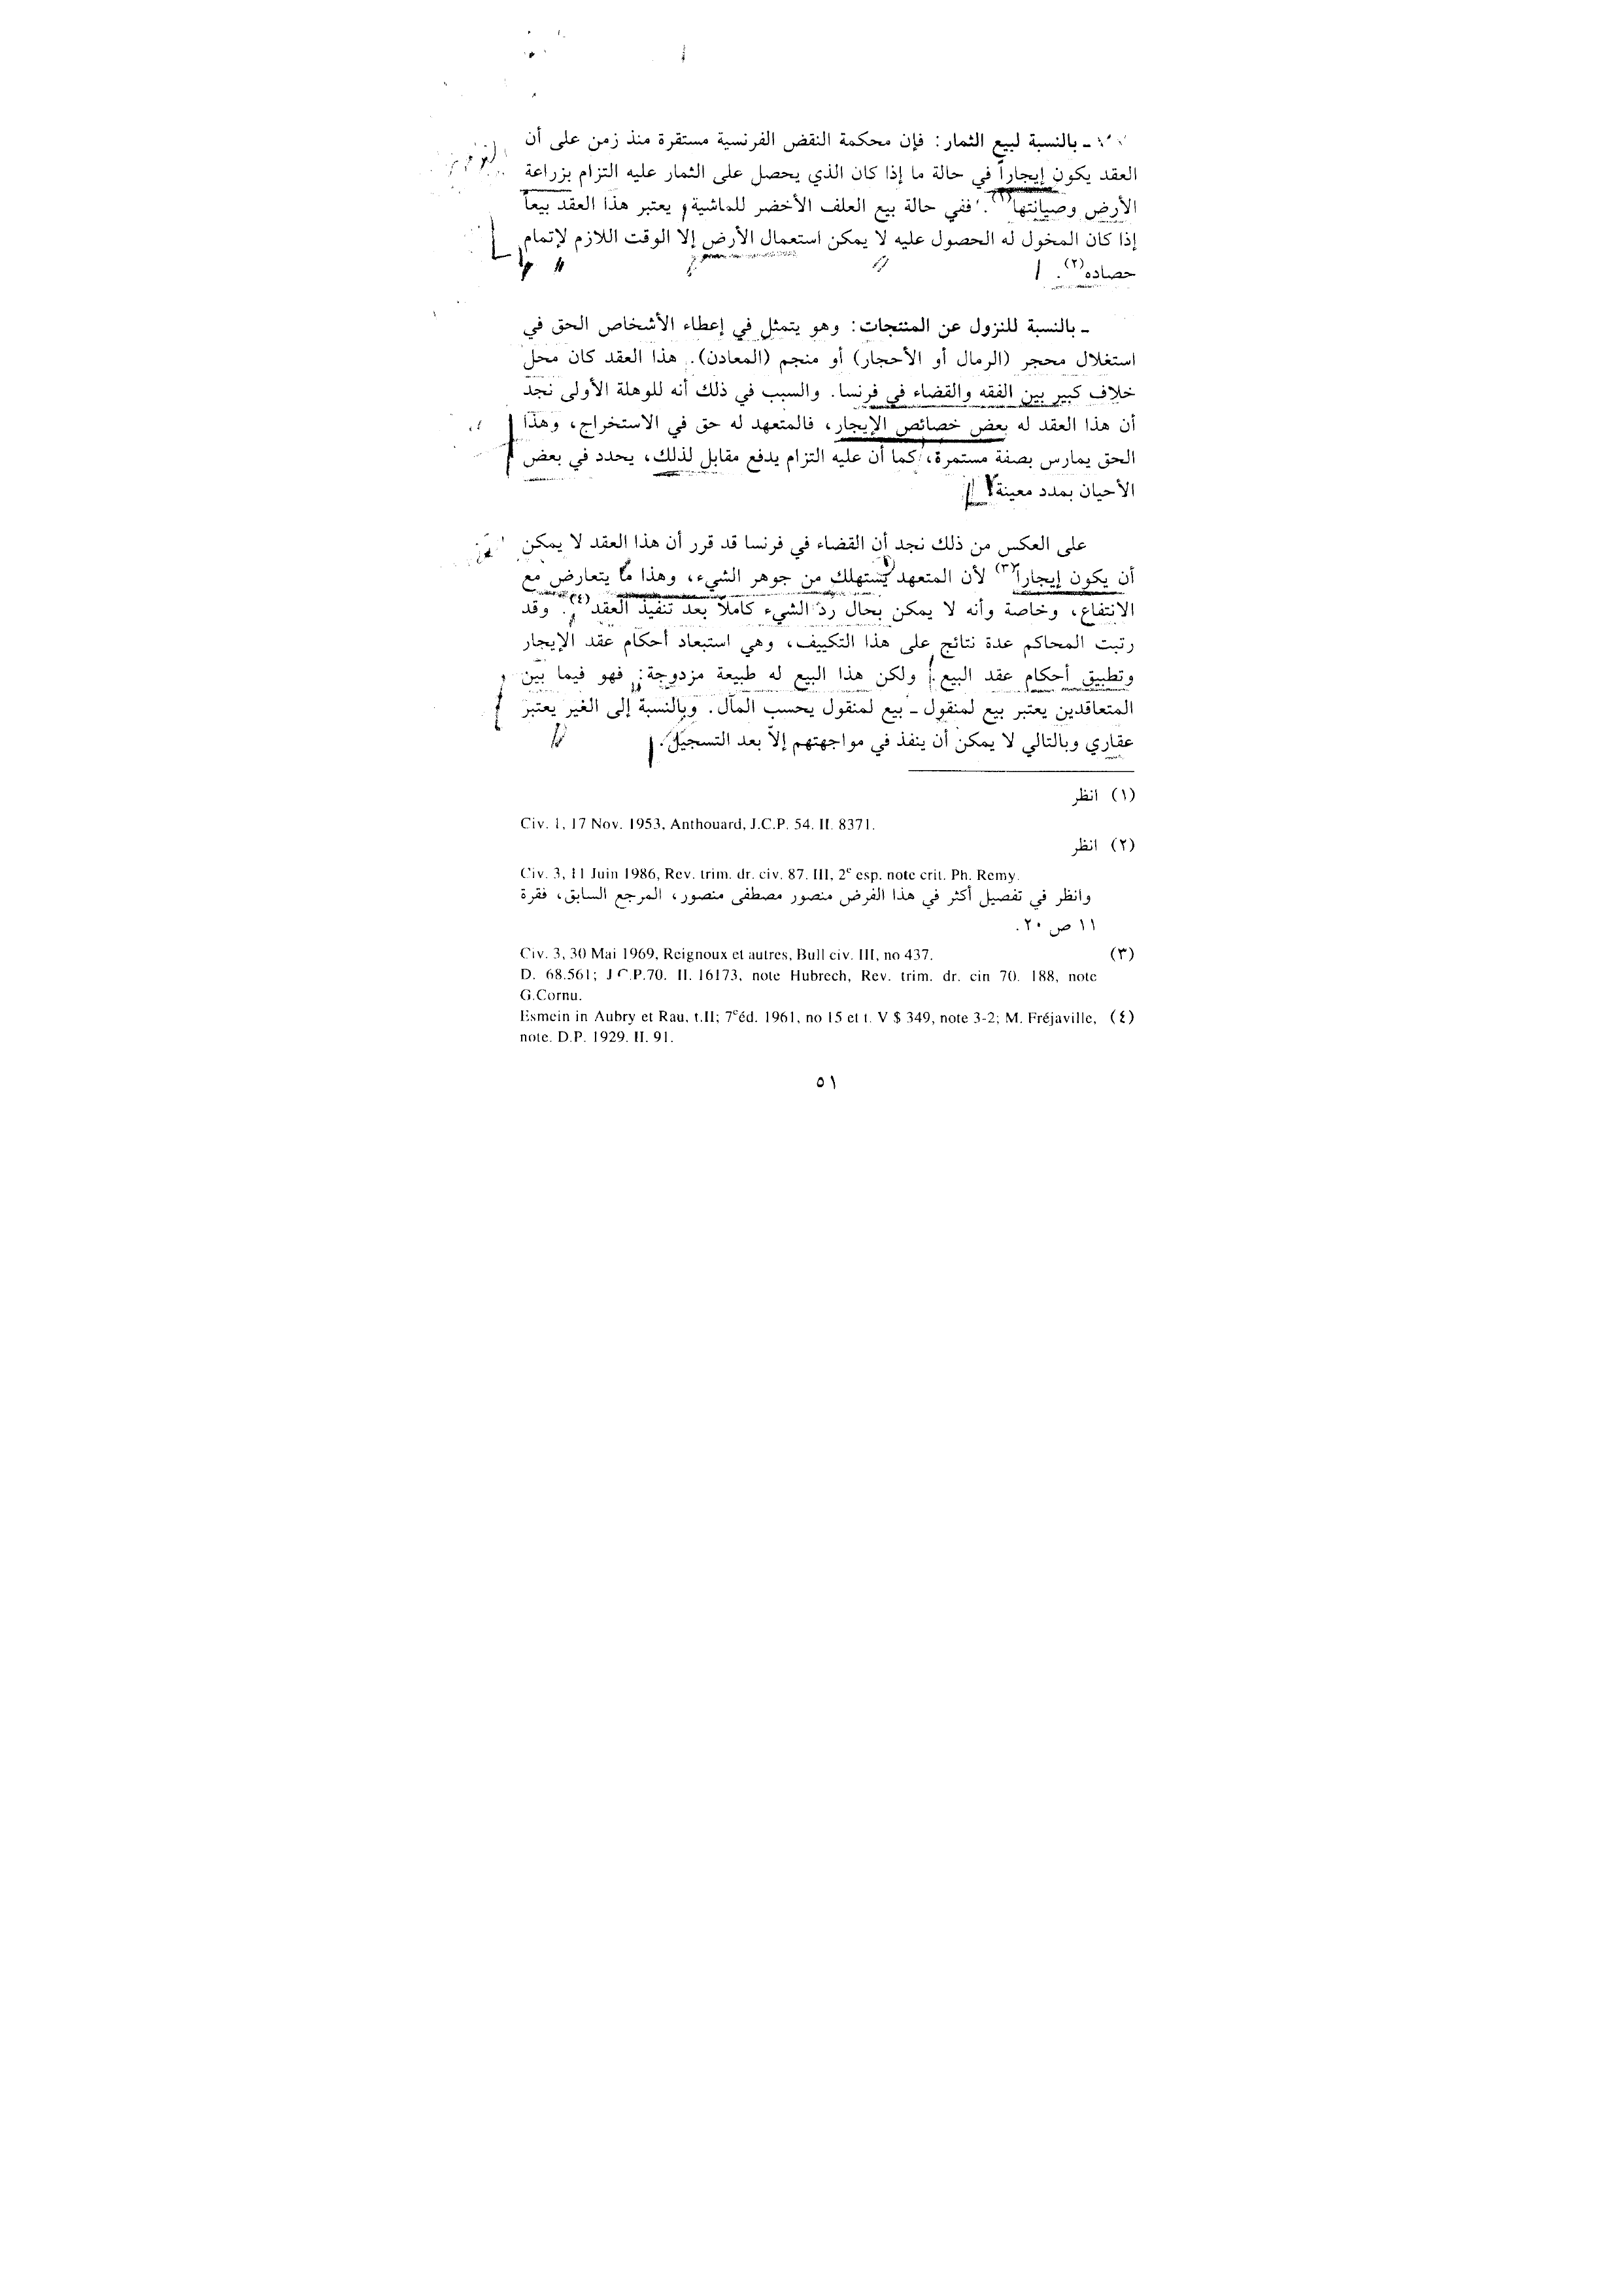 ـ بالنسبة لبيع الثمار: فإن محكمة النقض الفرنسية مستقرة منذ زمن على أن
العقد يكون إيجاراً في حالة ما إذا كان الذي يحصل على الثمار عليه التزام بزراعة
الأرض وصيانتها(١). ففي حالة بيع العلف الأخضر للماشية، يعتبر هذا العقد بيعاً
إذا كان المخول له الحصول عليه لا يمكن استعمال الأرض إلا الوقت اللازم لإتمام
حصاده(٢).
ـ بالنسبة للنزول عن المنتجات: وهو يتمثل في إعطاء الأشخاص الحق في
استغلال محجر (الرمال أو الأحجار) أو منجم (المعادن). هذا العقد كان محل
خلاف كبير بين الفقه والقضاء في فرنسا. والسبب في ذلك أنه للوهلة الأولى نجد
أن هذا العقد له بعض خصائص الإيجار، فالمتعهد له حق في الاستخراج، وهذا
الحق يمارس بصفة مستمرة، كما أن عليه التزام يدفع مقابل لذلك، يحدد في بعض
الأحيان بمدد معينة
على العكس من ذلك نجد أن القضاء في فرنسا قد قرر أن هذا العقد لا يمكن
أن يكون إيجاراً(٣) لأن المتعهد يستهلك من جوهر الشيء، وهذا ما يتعارض مع
الانتفاع، وخاصة وأنه لا يمكن بحال ردّ الشيء كاملاً بعد تنفيذ العقد(٤). وقد
رتبت المحاكم عدة نتائج على هذا التكييف، وهي استبعاد أحكام عقد الإيجار
وتطبيق أحكام عقد البيع. ولكن هذا البيع له طبيعة مزدوجة: فهو فيما بين
المتعاقدين يعتبر بيع لمنقول ـ بيع لمنقول يحسب المآل. وبالنسبة إلى الغير يعتبر
عقاري وبالتالي لا يمكن أن ينفذ في مواجهتهم إلاّ بعد التسجيل.
(١) انظر
Civ. 1, 17 Nov. 1953, Anthouard, J.C.P. 54. II. 8371.
(٢) انظر
Civ. 3, 11 Juin 1986, Rev. trim. dr. civ. 87. III, 2e esp. note crit. Ph. Remy.
وانظر في تفصيل أكثر في هذا الفرض منصور مصطفى منصور، المرجع السابق، فقرة
١١ ص ٢٠.
(٣) Civ. 3, 30 Mai 1969, Reignoux et autres, Bull civ. III, no 437.
D. 68.561; J.C.P.70. II. 16173, note Hubrech, Rev. trim. dr. cin 70. 188, note
G.Cornu.
(٤) Esmein in Aubry et Rau, t.II; 7eéd. 1961, no 15 et t. V $ 349, note 3-2; M. Fréjaville,
note. D.P. 1929. II. 91.
٥١